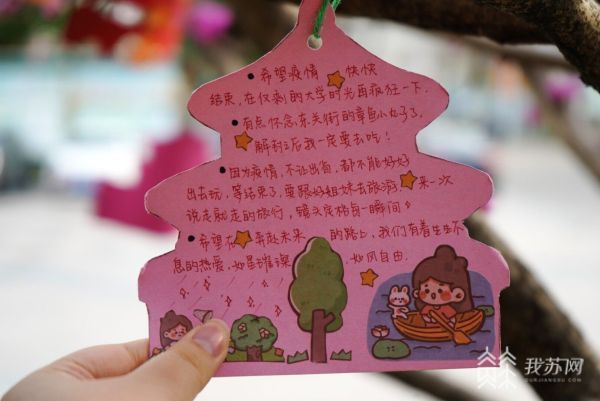 希望疫情 快快
结束，在仅剩的大学时光再疯狂一下.
有点怀念东关街的章鱼小丸子了，
解封之后我一定要去吃！
因为疫情，不让出省，都不能好好
出去玩，等结束了，要跟好姐妹去旅游 来一次
说走就走的旅行，镜头定格每一瞬间。
希望在 奔赴未来 的路上，我们有着生生不
息的热爱，如星璀璨 如风自由.
我苏网
OURJIANGSU.COM